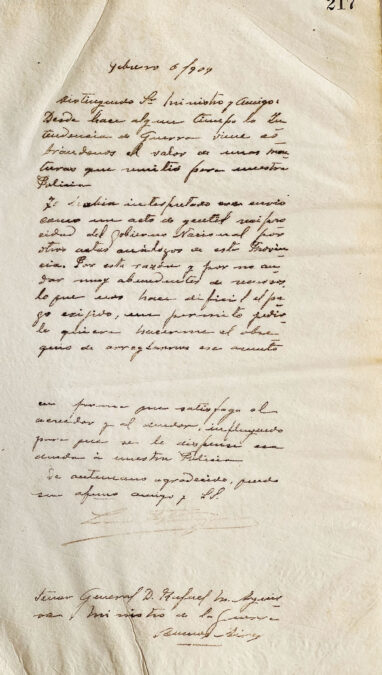 217
Febrero 6/909
Distinguido Sr. Ministro y amigo:
Desde hace algun tiempo la In-
tendencia de Guerra viene co-
brándonos el valor de unas mon-
turas que remitió para nuestra
Policia
Yo habia interpretado ese envio
como un acto de gentil recipro-
cidad del Gobierno Nacional por
otros actos análogos de esta Provin-
cia. Por esta razón y por no an-
dar muy abundantes de recursos,
lo que nos hace dificil el pa-
go exijido, me permito pedir-
le quiera hacerme el obse-
quio de arreglarnos ese asunto
en forma que satisfaga al
acreedor y al deudor, influyendo
para que se le dispense esa
deuda á nuestra Policia
De antemano agradecido, quedo
su afmo amigo y S.S.
Señor General D. Rafael M. Aguir-
re, Ministro de la Guerra
Buenos Aires